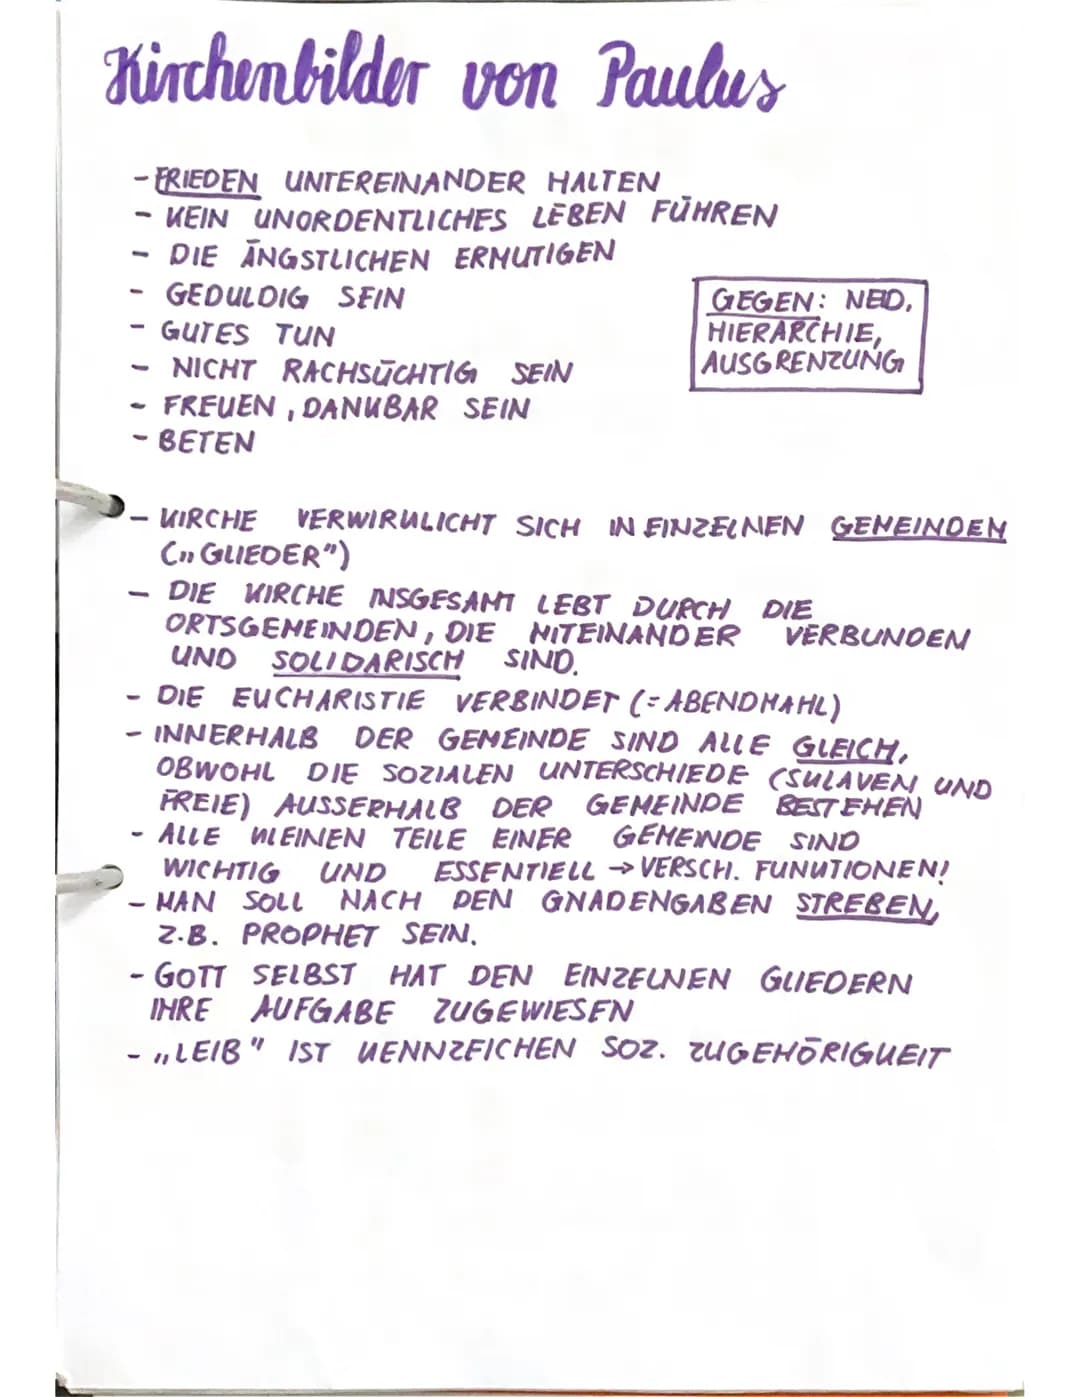 Kirchenbilder von Paulus
- FRIEDEN UNTEREINANDER HALTEN
- KEIN UNORDENTLICHES LEBEN FÜHREN
- DIE ÄNGSTLICHEN ERMUTIGEN
- GEDULDIG SEIN
- GUTES TUN
- NICHT RACHSÜCHTIG SEIN
- FREUEN, DANKBAR SEIN
- BETEN
GEGEN: NEID,
HIERARCHIE,
AUSGRENZUNG
- KIRCHE VERWIRKLICHT SICH IN EINZELNEN GEMEINDEN
(„GLIEDER")
- DIE KIRCHE INSGESAMT LEBT DURCH DIE
ORTSGEMEINDEN, DIE MITEINANDER VERBUNDEN
UND SOLIDARISCH SIND.
- DIE EUCHARISTIE VERBINDET (=ABENDMAHL)
- INNERHALB DER GEMEINDE SIND ALLE GLEICH,
OBWOHL DIE SOZIALEN UNTERSCHIEDE (SKLAVEN UND
FREIE) AUSSERHALB DER GEMEINDE BESTEHEN
- ALLE KLEINEN TEILE EINER GEMEINDE SIND
WICHTIG UND ESSENTIELL → VERSCH. FUNKTIONEN!
- MAN SOLL NACH DEN GNADENGABEN STREBEN,
Z.B. PROPHET SEIN.
- GOTT SELBST HAT DEN EINZELNEN GLIEDERN
IHRE AUFGABE ZUGEWIESEN
- „LEIB" IST KENNZEICHEN SOZ. ZUGEHÖRIGKEIT